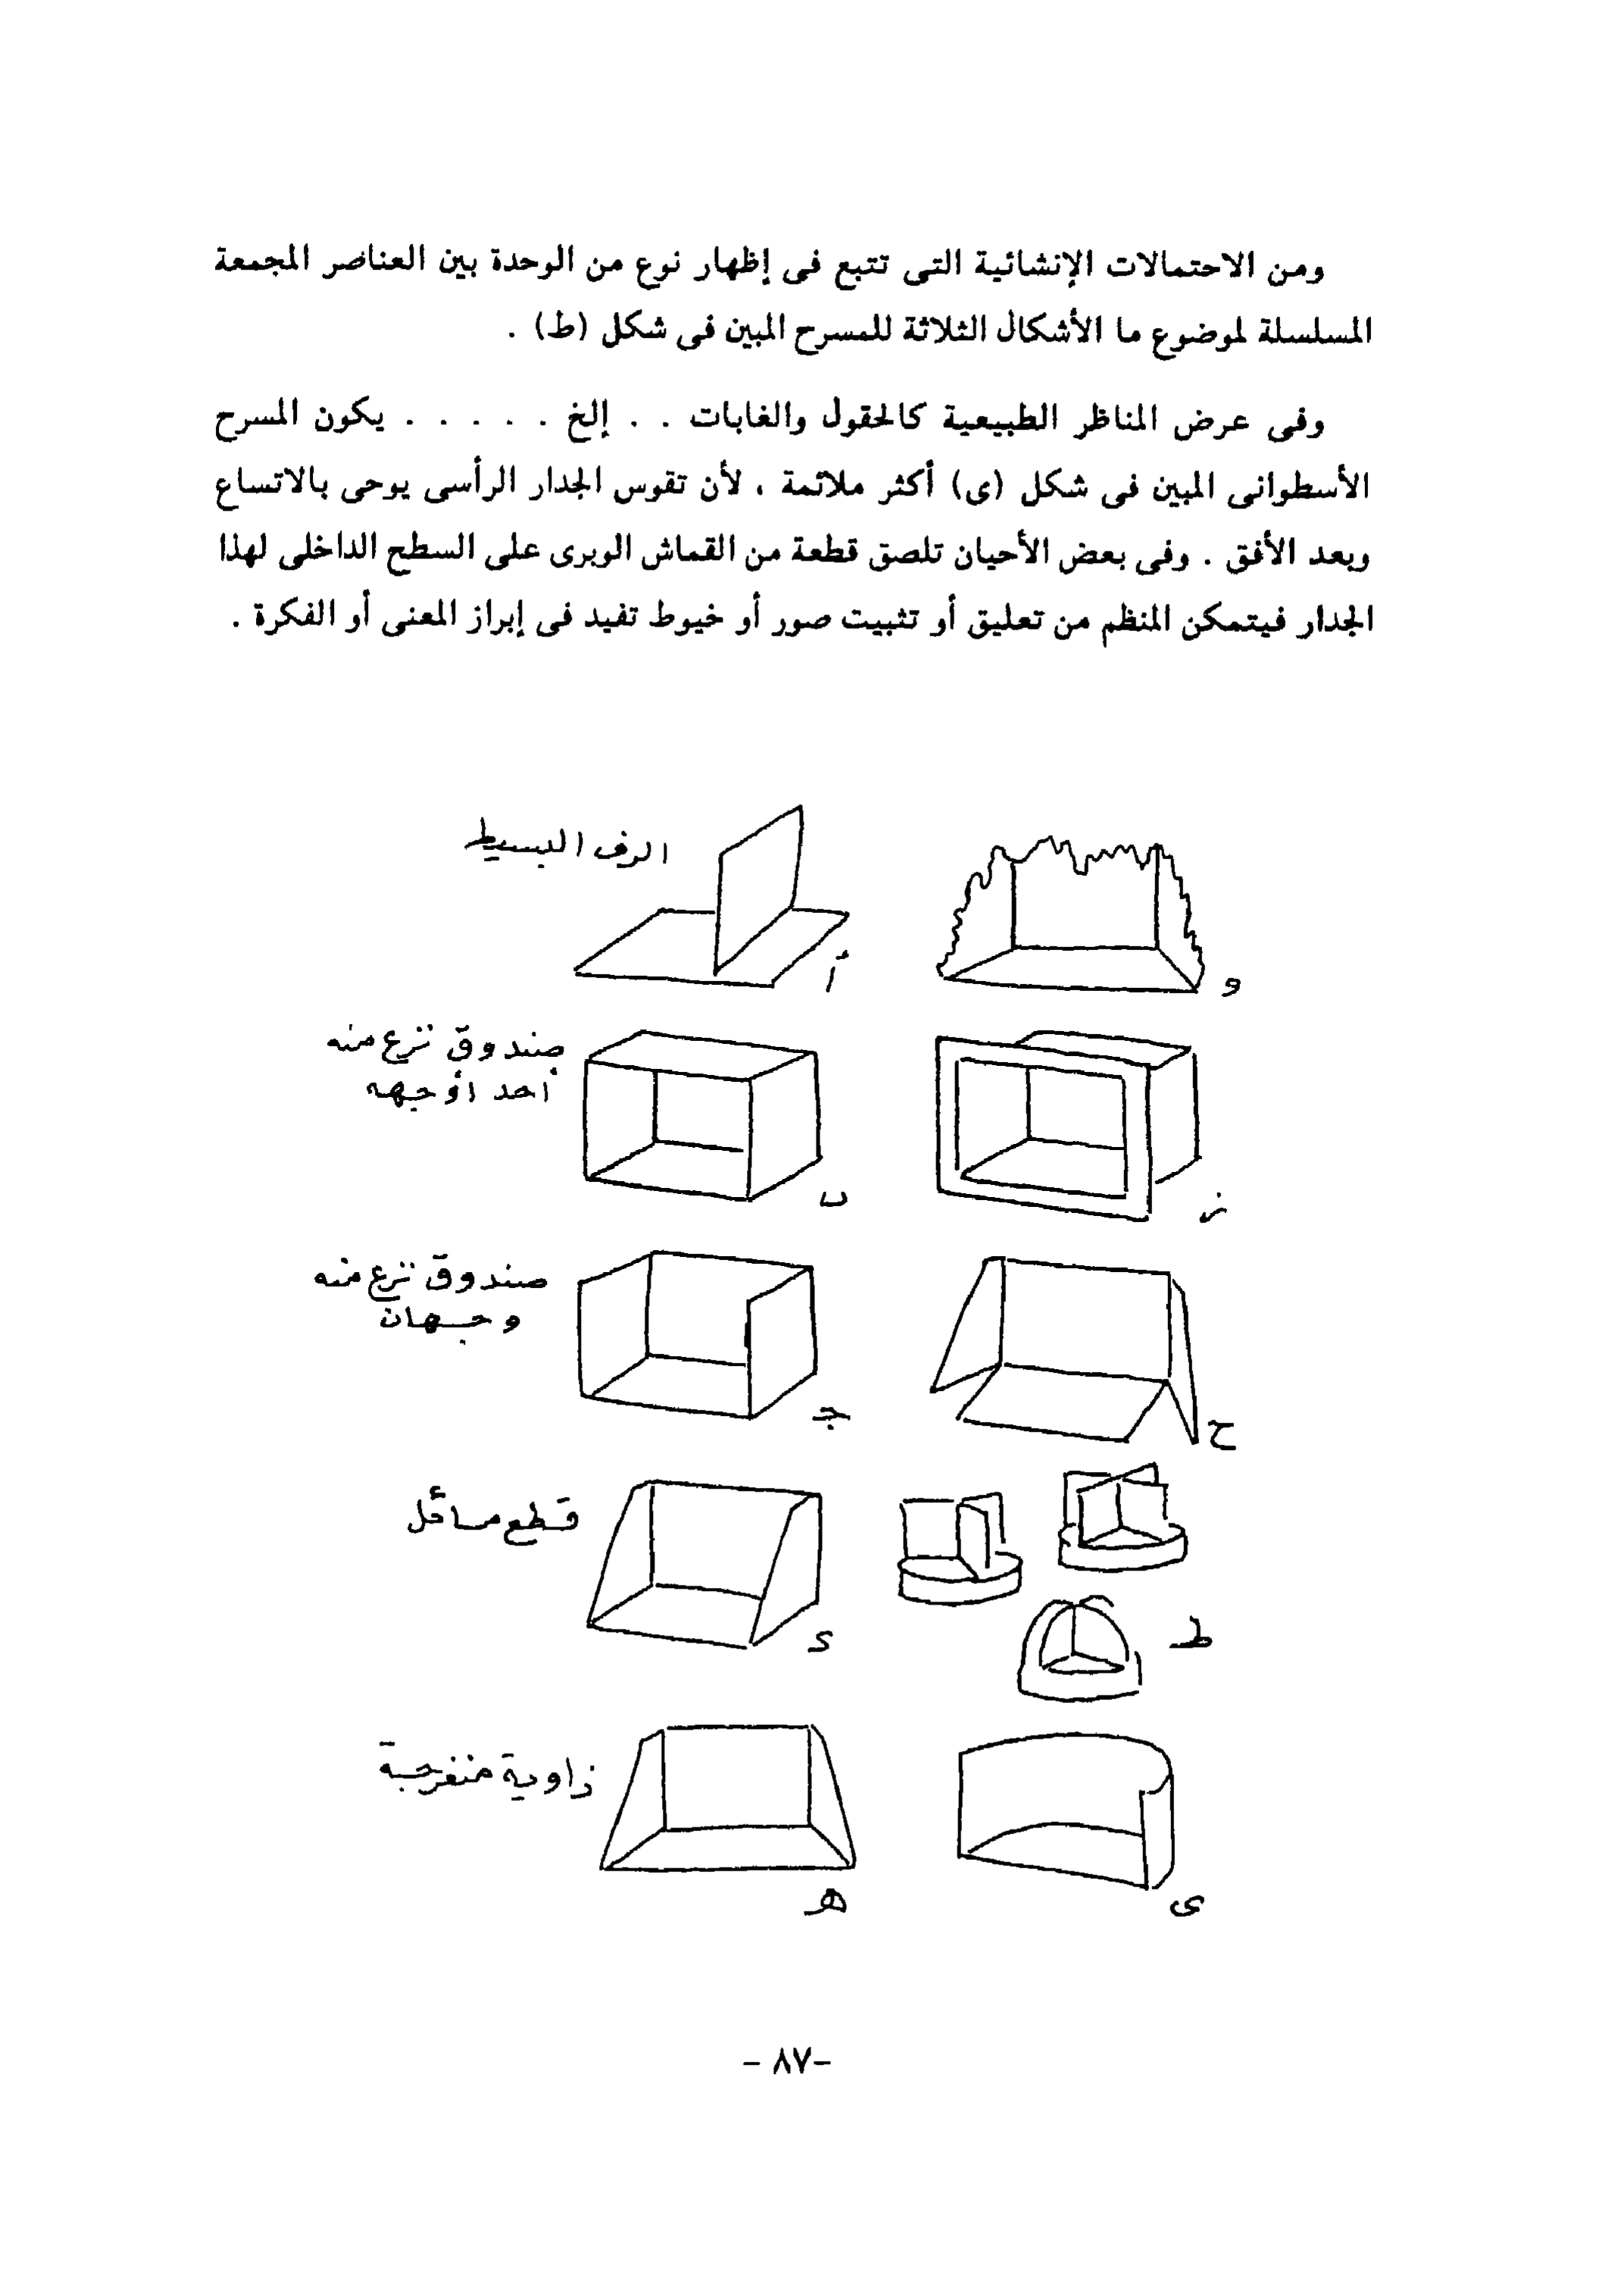 ومن الاحتمالات الإنشائية التى تتبع فى إظهار نوع من الوحدة بين العناصر المجمعة
المسلسلة لموضوع ما الأشكال الثلاثة للمسرح المبين فى شكل (ط) .
وفى عرض المناظر الطبيعية كالحقول والغابات . . إلخ . . . . . يكون المسرح
الأسطوانى المبين فى شكل (ى) أكثر ملائمة ، لأن تقوس الجدار الرأسى يوحى بالاتساع
وبعد الأفق . وفى بعض الأحيان تلصق قطعة من القماش الوبرى على السطح الداخلى لهذا
الجدار فيتمكن المنظم من تعليق أو تثبيت صور أو خيوط تفيد فى إبراز المعنى أو الفكرة .
الرف البسيط
أ
و
صندوق نزع منه
أحد أوجهه
ب
ز
صندوق نزع منه
وجهان
جـ
ح
قطع مائل
د
ط
زاوية منفرجة
هـ
ى
- ٨٧-